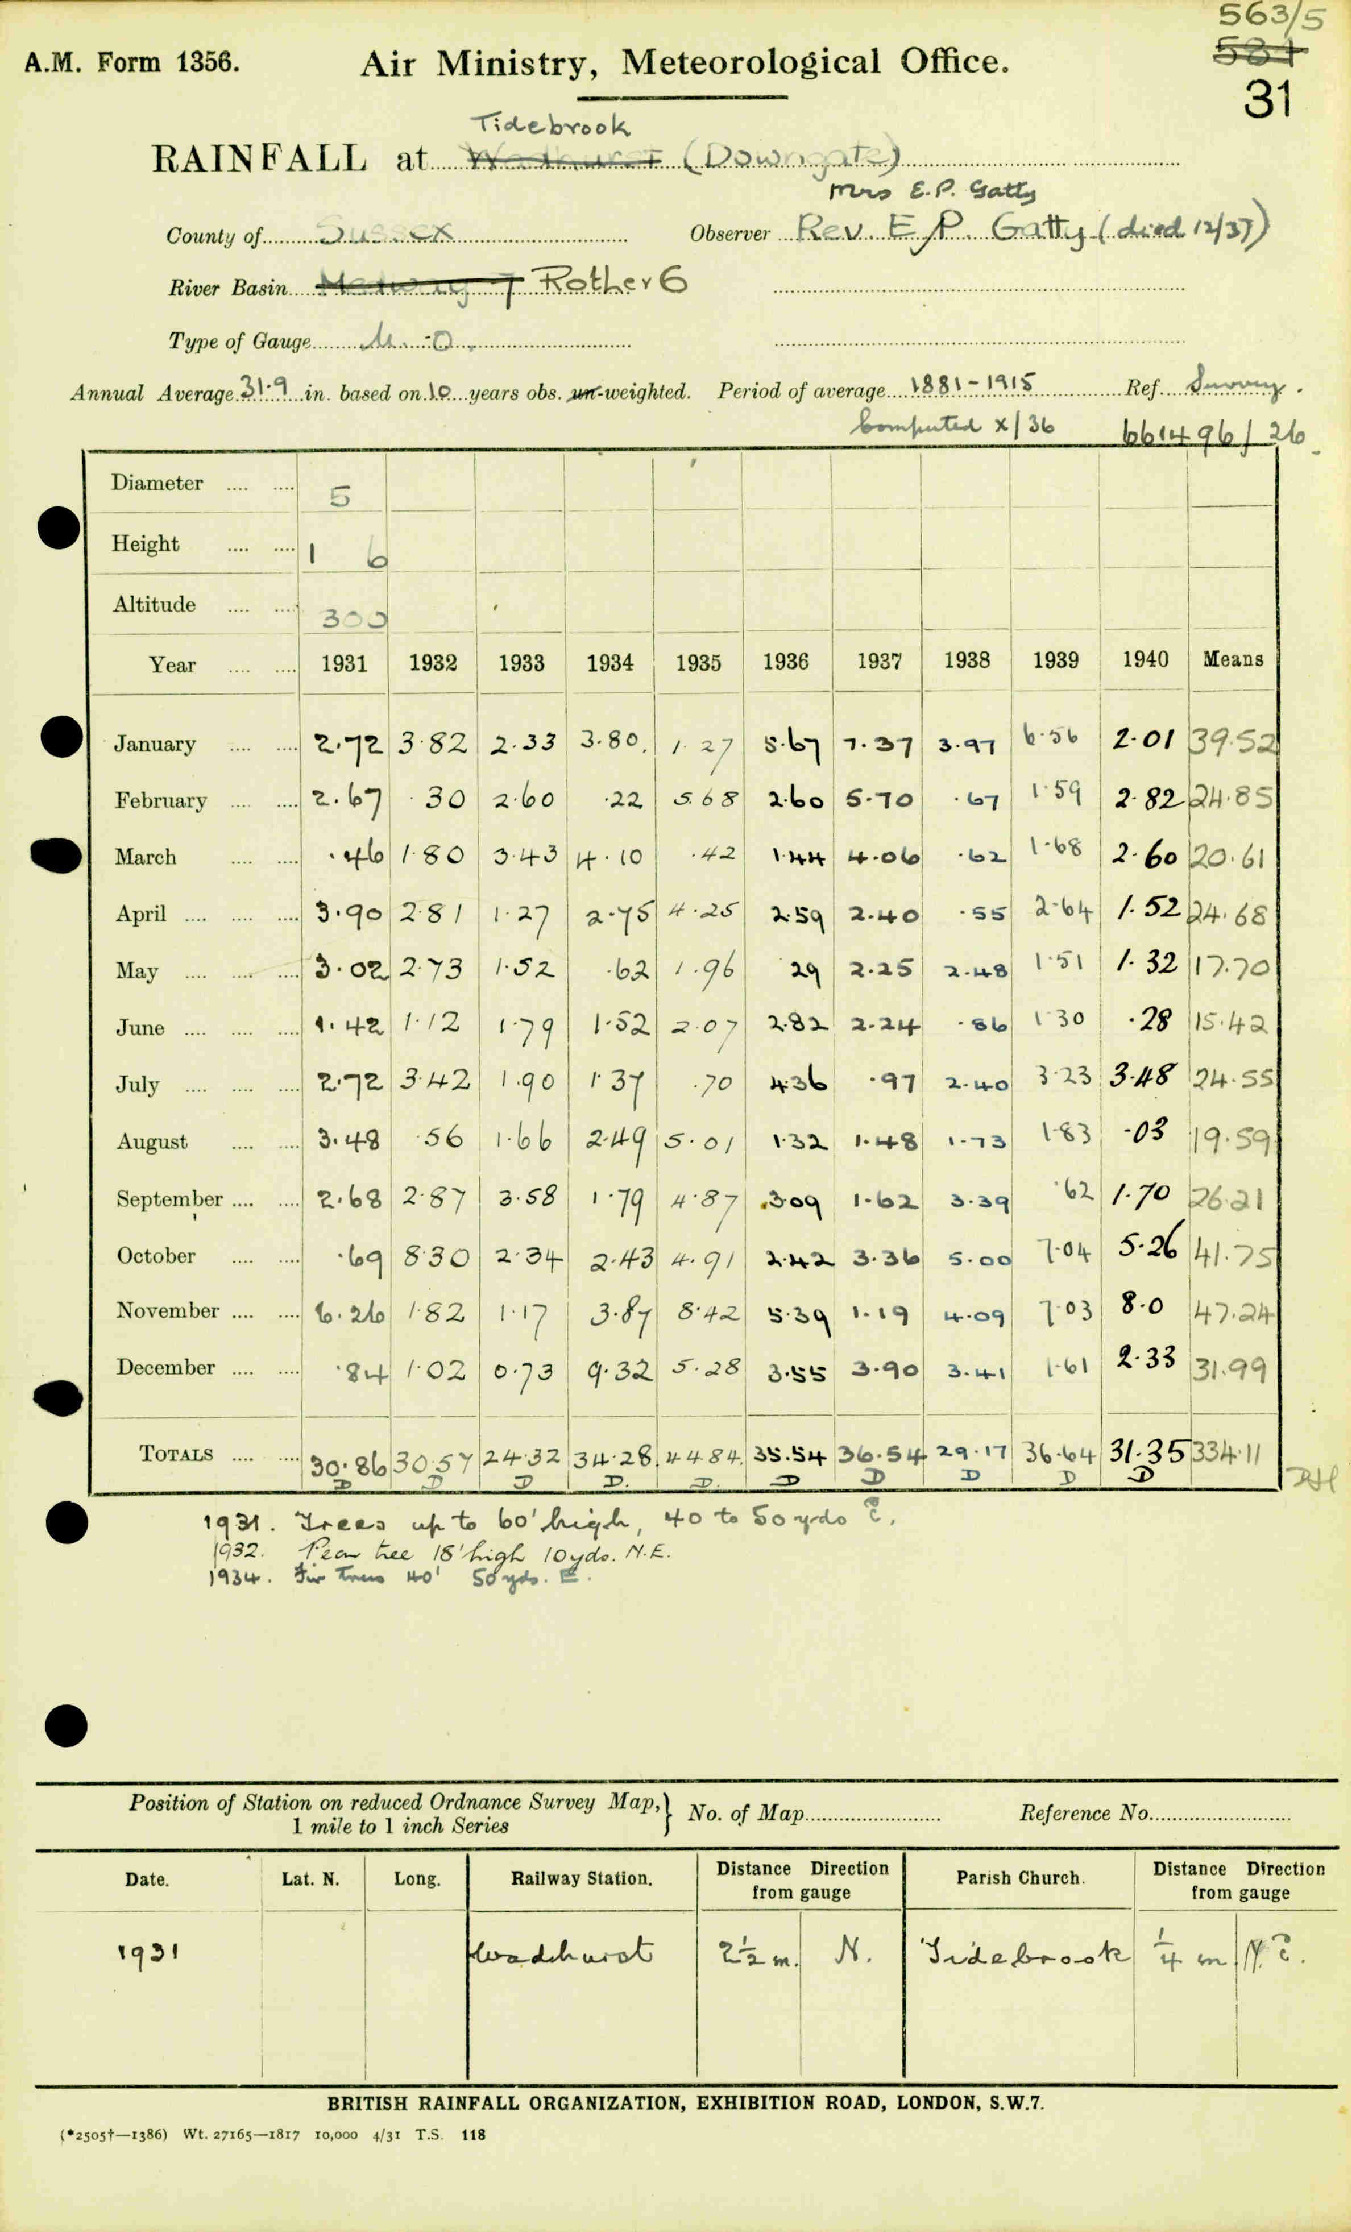 563/5
A.M. Form 1356. Air Ministry, Meteorological Office. 584
31
Tidebrook
RAINFALL at Wadhurst (Downgate)
Mrs E.P. Gatty
County of Sussex Observer Rev. E.P. Gatty (died 12/37)
River Basin Medway 7 Rother 6
Type of Gauge M.O.
Annual Average 31.9 in. based on 10 years obs. un-weighted. Period of average 1881-1915 Ref. Survey.
Computed X/36 661496/26
Diameter .... .... 5
Height .... .... 1 6
Altitude .... .... 300
Year .... .... 1931 1932 1933 1934 1935 1936 1937 1938 1939 1940 Means
January .... .... 2.72 3.82 2.33 3.80 1.27 5.67 7.37 3.97 6.56 2.01 39.52
February .... .... 2.67 .30 2.60 .22 5.68 2.60 5.70 .67 1.59 2.82 24.85
March .... .... .46 1.80 3.43 4.10 .42 1.44 4.06 .62 1.68 2.60 20.61
April .... .... .... 3.90 2.81 1.27 2.75 4.25 2.59 2.40 .55 2.64 1.52 24.68
May .... .... .... 3.02 2.73 1.52 .62 1.96 29 2.25 2.48 1.51 1.32 17.70
June .... .... .... 1.42 1.12 1.79 1.52 2.07 2.82 2.24 .86 1.30 .28 15.42
July .... .... .... 2.72 3.42 1.90 1.37 .70 4.36 .97 2.40 3.23 3.48 24.55
August .... .... 3.48 .56 1.66 2.49 5.01 1.32 1.48 1.73 1.83 .03 19.59
September .... .... 2.68 2.87 3.58 1.79 4.87 3.09 1.62 3.39 .62 1.70 26.21
October .... .... .69 8.30 2.34 2.43 4.91 2.42 3.36 5.00 7.04 5.26 41.75
November .... .... 6.26 1.82 1.17 3.87 8.42 5.39 1.19 4.09 7.03 8.0 47.24
December .... .... .84 1.02 0.73 9.32 5.28 3.55 3.90 3.41 1.61 2.33 31.99
TOTALS .... .... 30.86 30.57 24.32 34.28 44.84 35.54 36.54 29.17 36.64 31.35 334.11
D D D D. D. D D D D D
1931. Trees up to 60' high, 40 to 50 yds E.
1932. Pear tree 18' high 10 yds. N.E.
1934. Fir Trees 40' 50 yds. E.
Position of Station on reduced Ordnance Survey Map, 1 mile to 1 inch Series } No. of Map Reference No.
Date. Lat. N. Long. Railway Station. Distance Direction from gauge Parish Church. Distance Direction from gauge
1931 Wadhurst 2½ m. N. Tidebrook ¼ m N.E.
BRITISH RAINFALL ORGANIZATION, EXHIBITION ROAD, LONDON, S.W.7.
(*2505†—1386) Wt. 27165—1817 10,000 4/31 T.S. 118